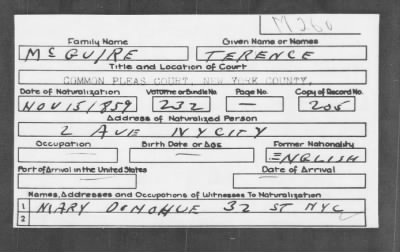 M260
Family Name Given Name or Names
McGUIRE TERENCE
Title and Location of Court
COMMON PLEAS COURT, NEW YORK COUNTY,
Date of Naturalization Volume or Bundle No. Page No. Copy of Record No.
NOV 15 1859 232 — 205
Address of Naturalized Person
2 AVE NY CITY
Occupation Birth Date or Age Former Nationality
ENGLISH
Port of Arrival in the United States Date of Arrival
Names, Addresses and Occupations of Witnesses To Naturalization
1 MARY DONOHUE 32 ST NYC
2